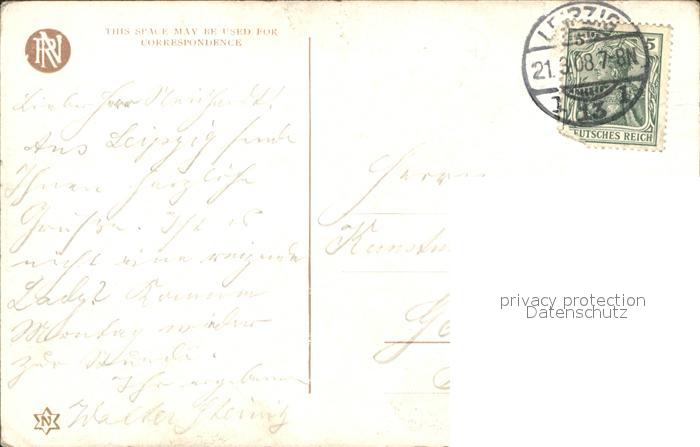 THIS SPACE MAY BE USED FOR
CORRESPONDENCE
LEIPZIG
21.3.08.7-8N
13
5
DEUTSCHES REICH
Lieber Herr Neithardt!
Aus Leipzig sende
Ihnen herzliche
Grüße. Ist es
nicht eine reizende
Lady? Komme
Montag wieder
zur Stunde.
Ihr ergebener
Walter
Herrn
privacy protection
Datenschutz
N